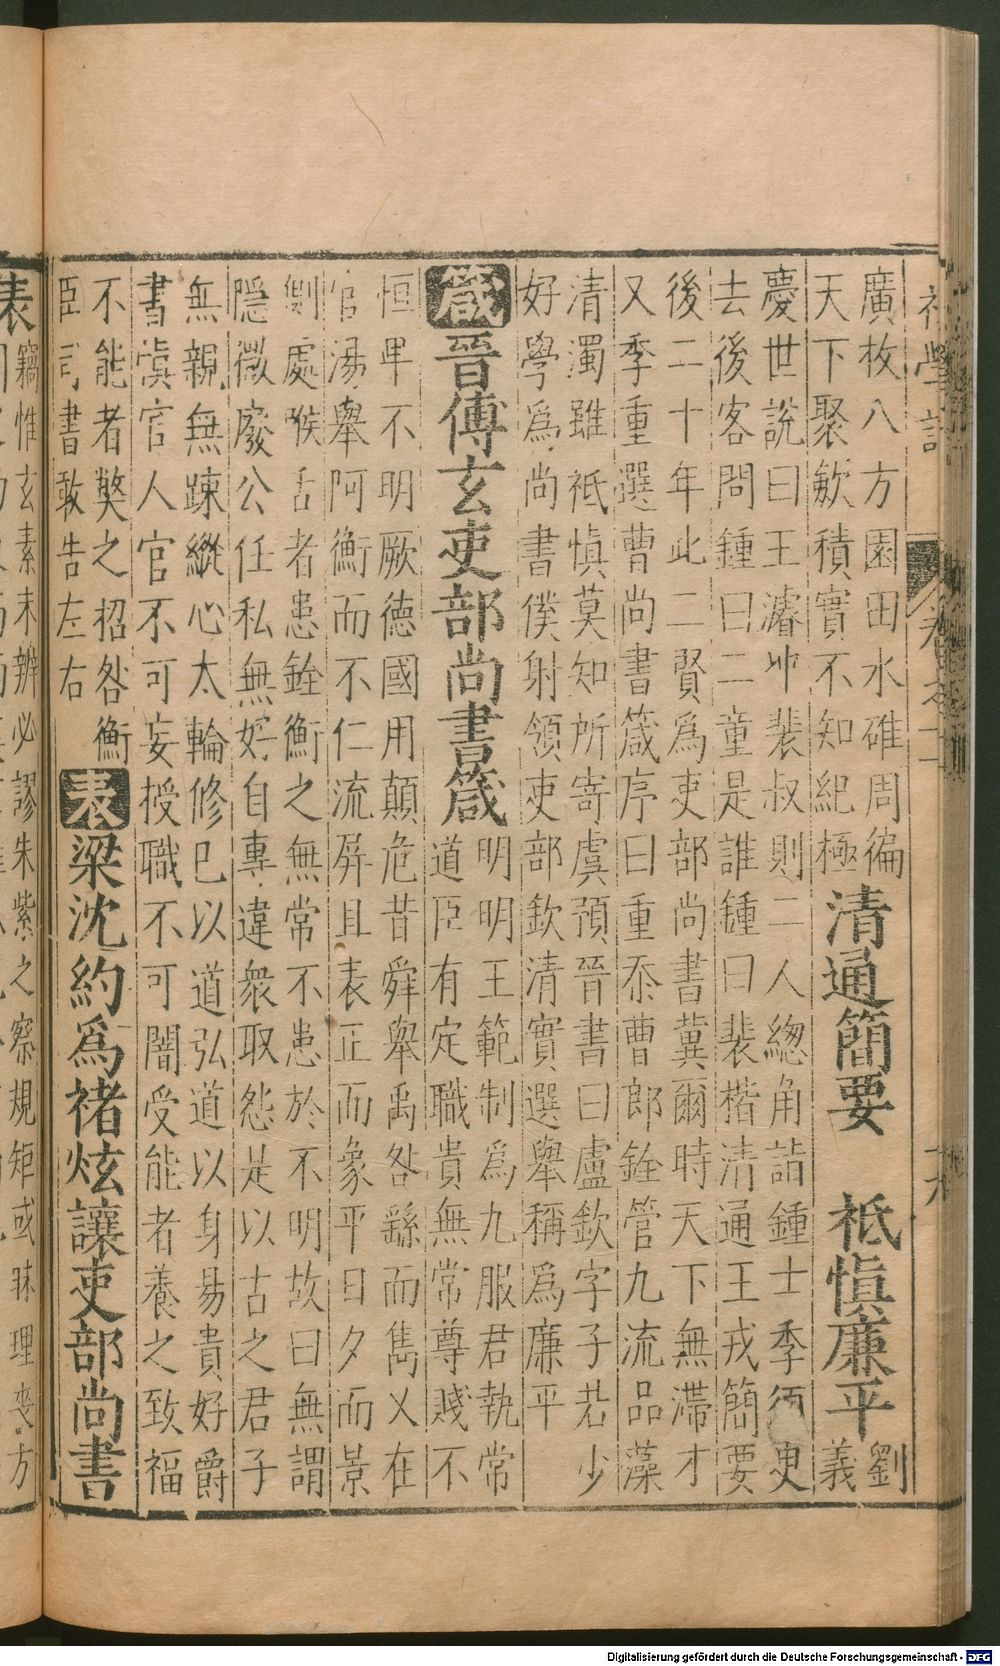 廣枚八方園田水碓周徧
天下聚歛積實不知紀極
清通簡要 祗慎廉平
劉義
慶世說曰王濬冲裴叔則二人總角詣鍾士季須臾
去後客問鍾曰二童是誰鍾曰裴楷清通王戎簡要
後二十年此二賢爲吏部尚書冀爾時天下無滯才
又季重選曹尚書箴序曰重忝曹郎銓管九流品藻
清濁雖祗慎莫知所寄虞預晉書曰盧欽字子若少
好學爲尚書僕射領吏部欽清實選舉稱爲廉平
箴晉傅玄吏部尚書箴
明明王範制爲九服君執常
道臣有定職貴無常尊賤不
恒卑不明厥德國用顛危昔舜舉禹咎繇而雋乂在
官湯舉阿衡而不仁流屏且表正而象平日夕而景
側處喉舌者患銓衡之無常不患於不明故曰無謂
隱微廢公任私無好自專違衆取怨是以古之君子
無親無踈縱心太輪修已以道弘道以身易貴好爵
書慎官人官不可妄授職不可闇受能者養之致福
不能者獘之招咎衡
臣司書敢告左右
表梁沈約爲褚炫讓吏部尚書
表
竊惟玄素未辨必謬朱紫之察規矩或昧理乖方
初學記
卷之十一
十六
Digitalisierung gefördert durch die Deutsche Forschungsgemeinschaft - DFG